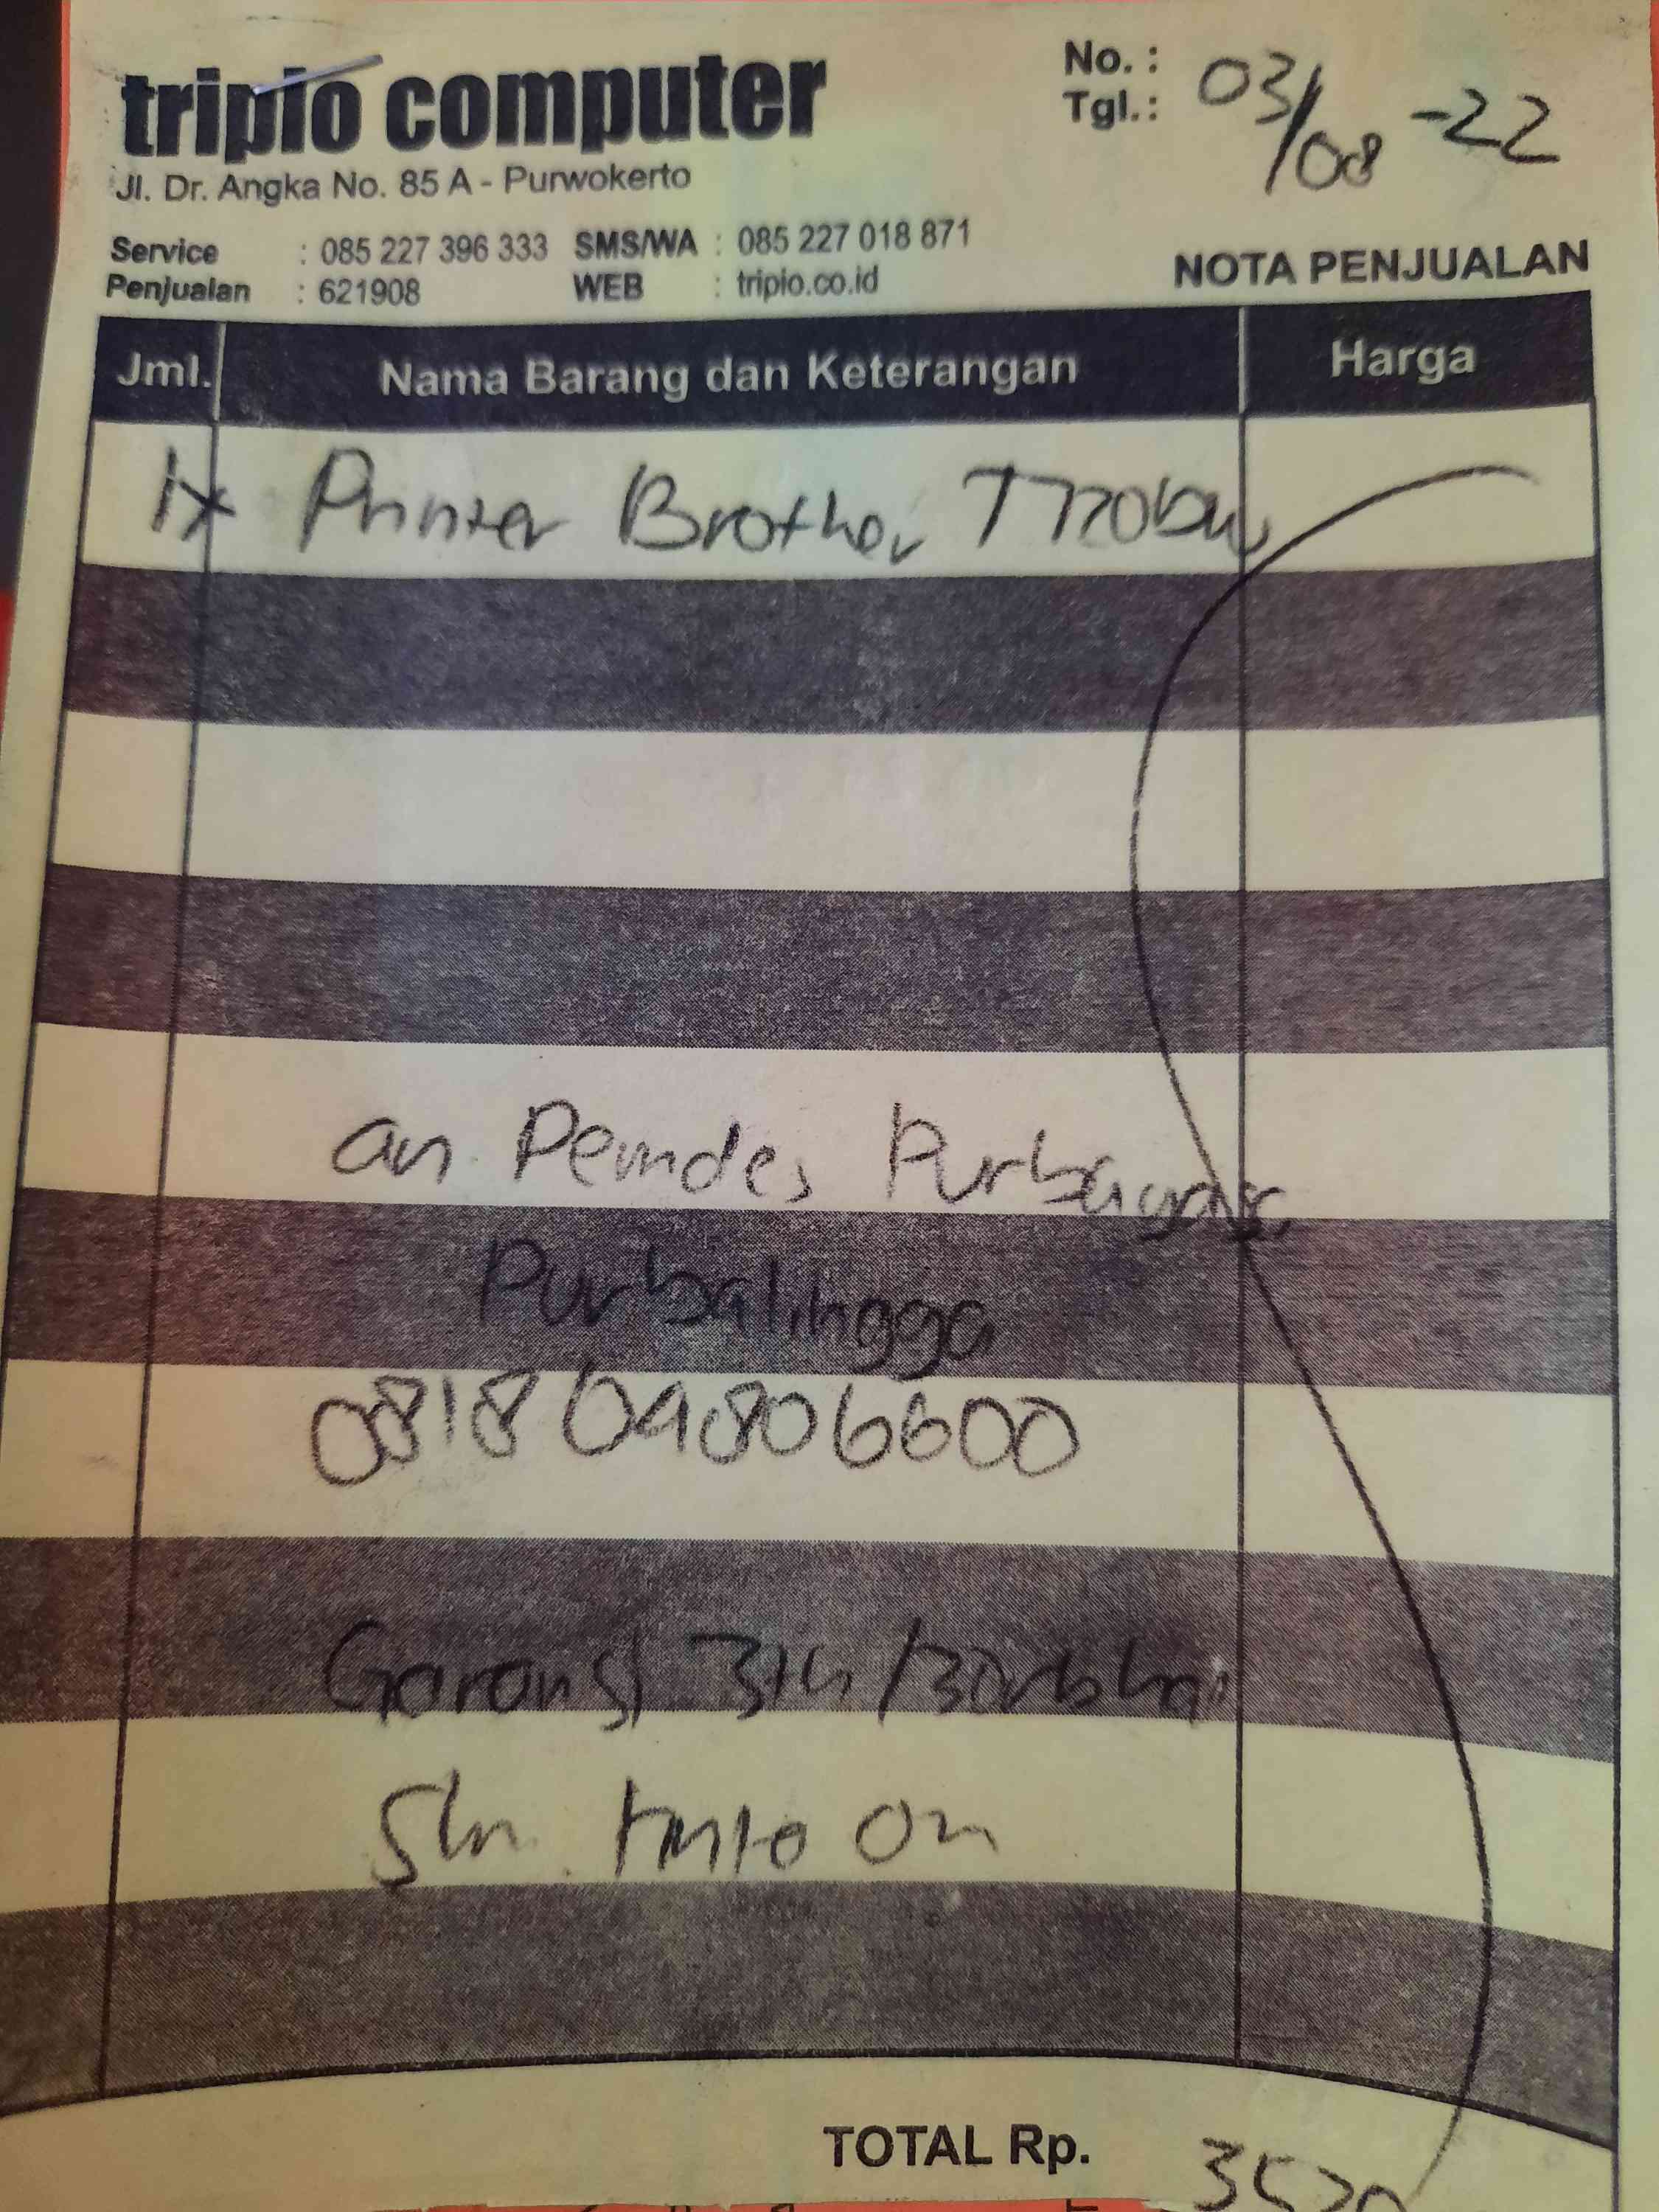 tripio computer
Jl. Dr. Angka No. 85 A - Purwokerto
Service : 085 227 396 333 SMS/WA : 085 227 018 871
Penjualan : 621908 WEB : tripio.co.id
No. :
Tgl. : 03/08-22
NOTA PENJUALAN
Jml. Nama Barang dan Keterangan Harga
1x Printer Brother T720dw
an Pemdes Purbayasa
Purbalingga
0818 04806600
Garansi 3th/30rb hal
Sln. tinta ori
TOTAL Rp. 3520